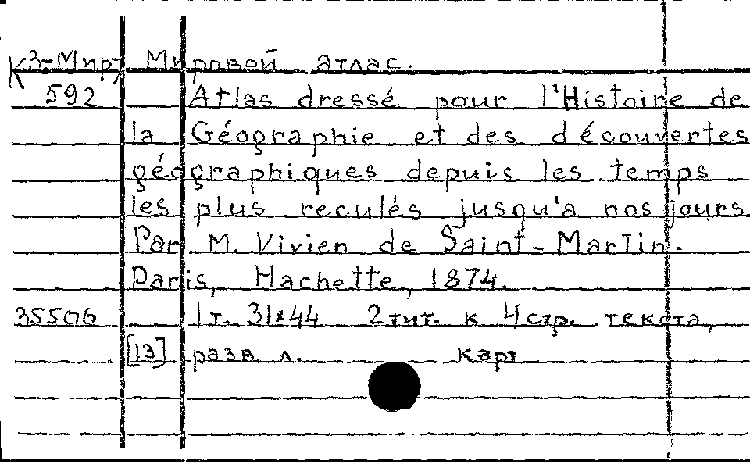 К3-Мир, Мировой атлас.
592 Atlas dressé pour l'Histoire de
la Géographie et des découvertes
géographiques depuis les temps
les plus reculés jusqu'a nos jours.
Par M. Vivien de Saint-Martin.
Paris, Hachette, 1874.
35506 1т. 31x44 2 тит. к 4 стр. текста,
[13] разв. л. карт